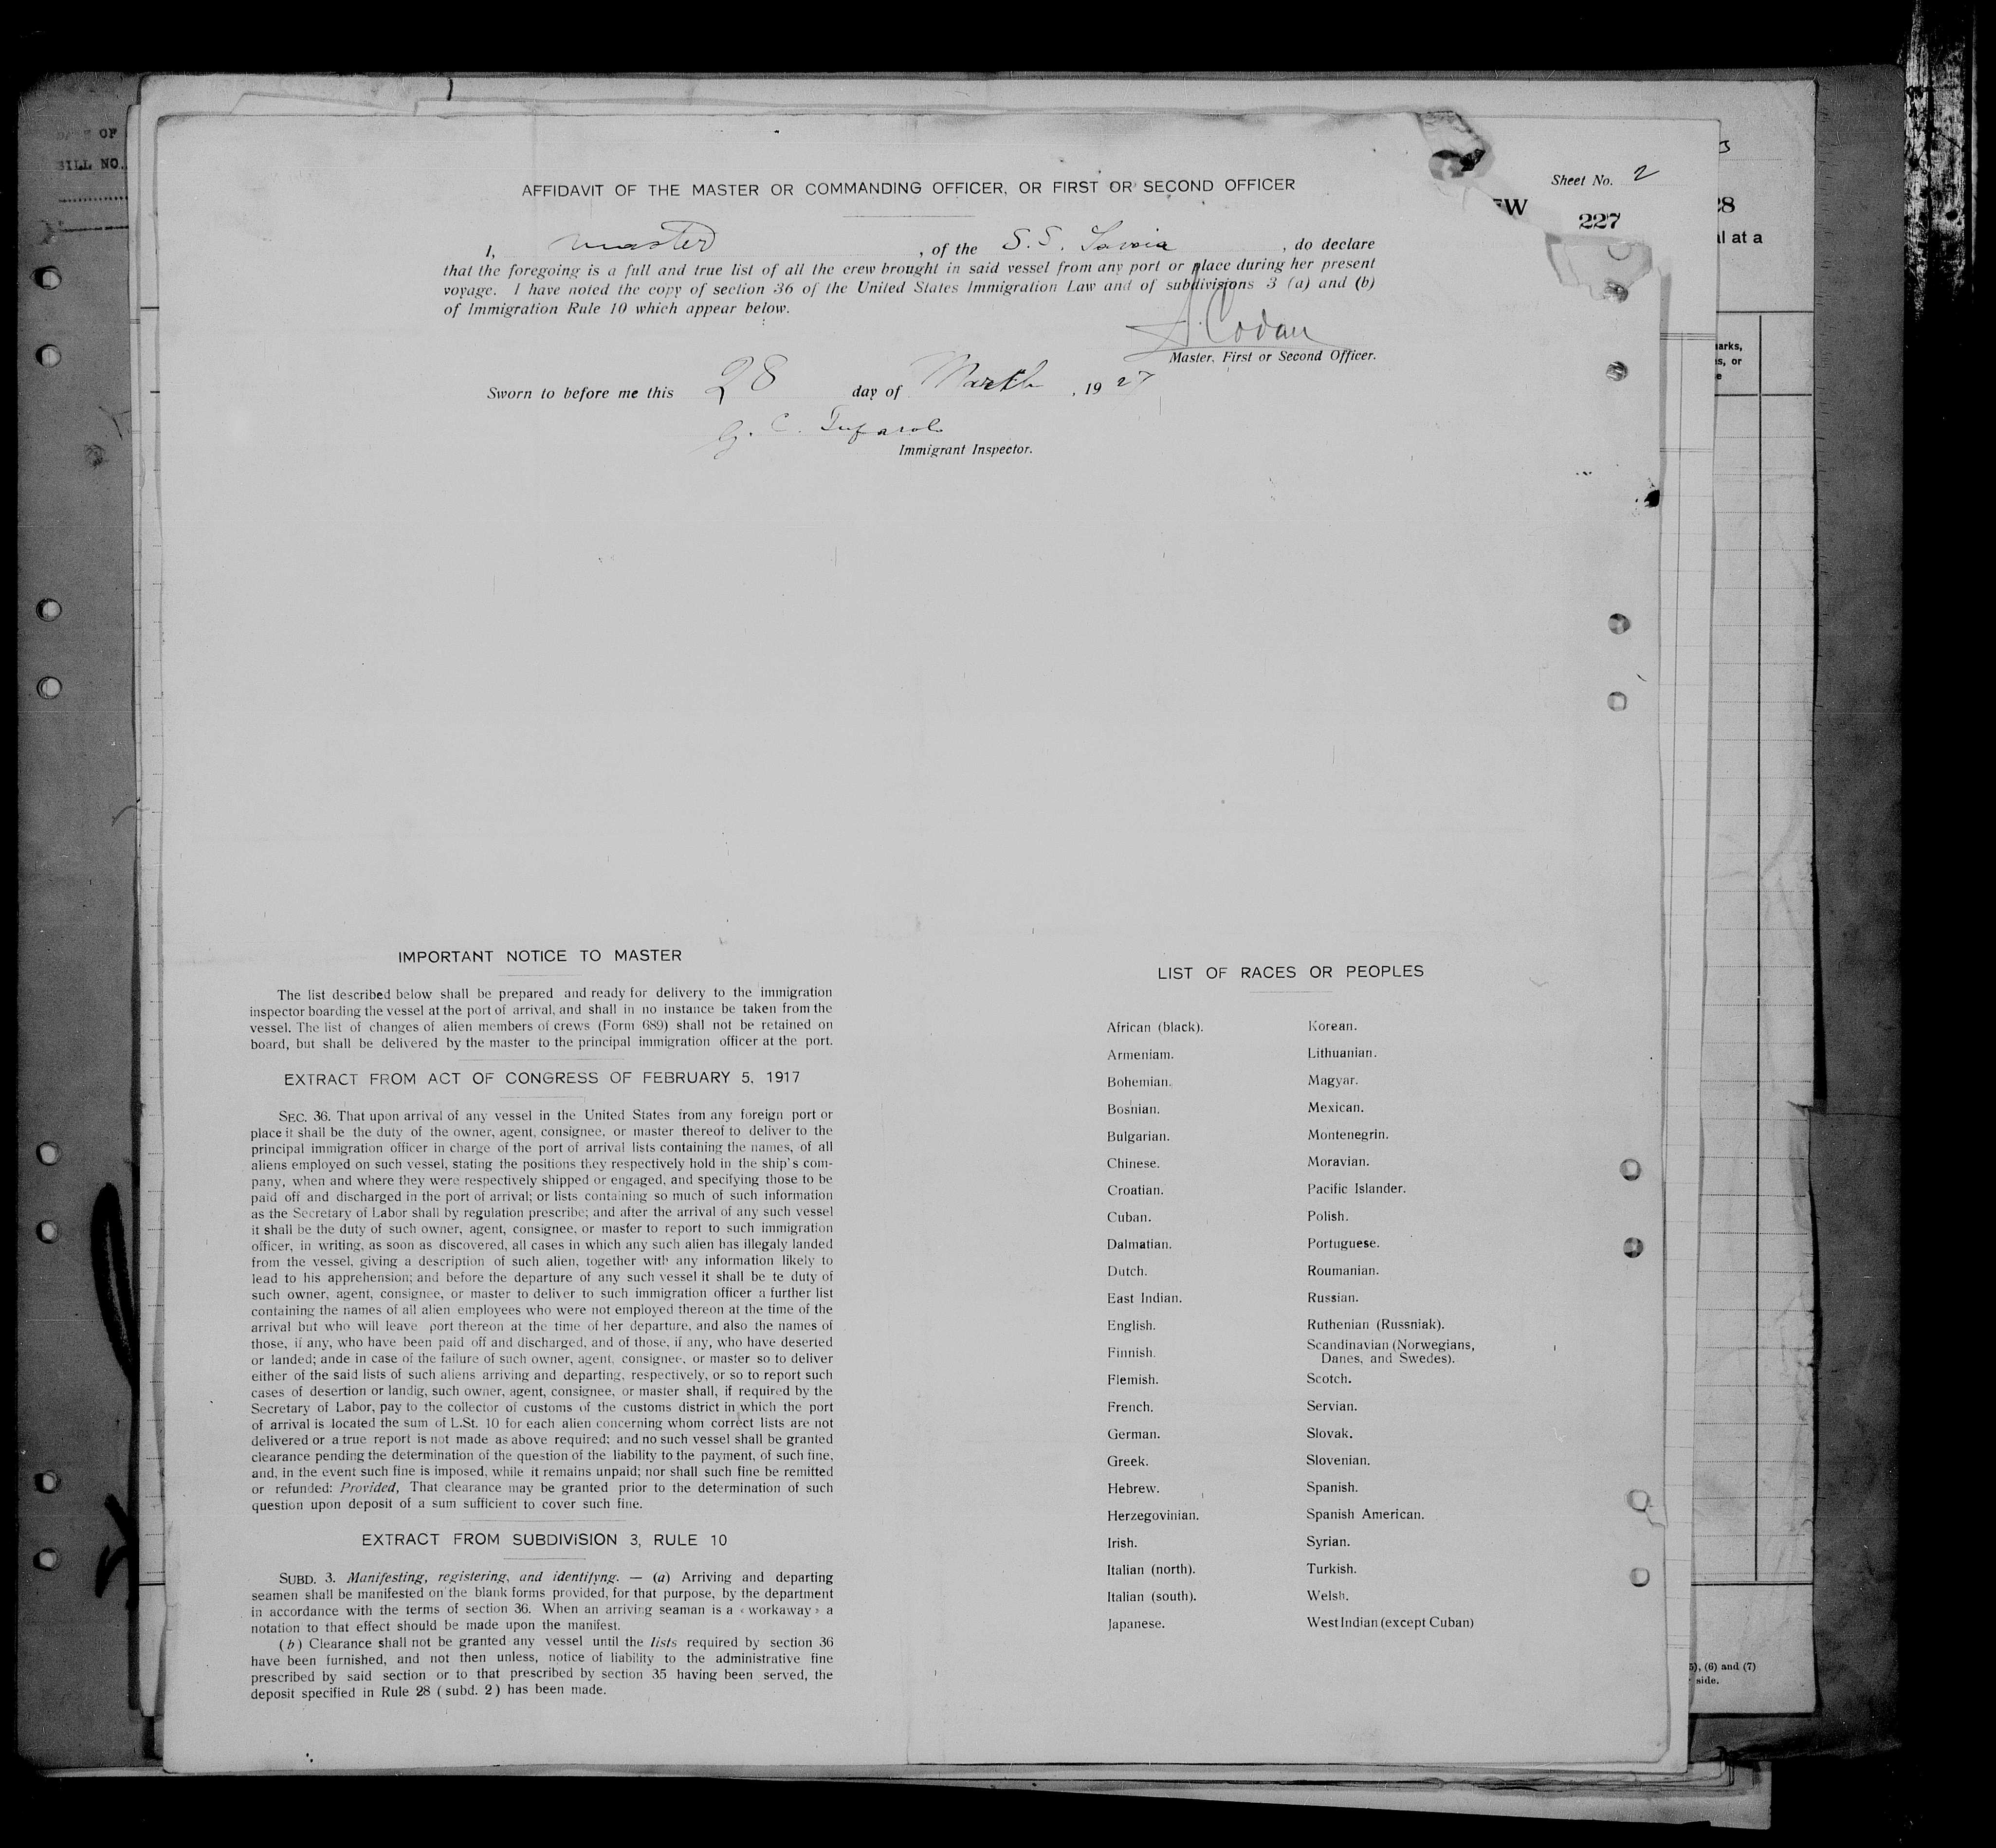 DATE OF
BILL NO.
Sheet No. 2
EW 227
28
al at a
AFFIDAVIT OF THE MASTER OR COMMANDING OFFICER, OR FIRST OR SECOND OFFICER
I, master , of the S.S. , do declare
that the foregoing is a full and true list of all the crew brought in said vessel from any port or place during her present
voyage. I have noted the copy of section 36 of the United States Immigration Law and of subdivisions 3 (a) and (b)
of Immigration Rule 10 which appear below.
Master, First or Second Officer.
Sworn to before me this 28 day of March , 1927
Immigrant Inspector.
IMPORTANT NOTICE TO MASTER
The list described below shall be prepared and ready for delivery to the immigration
inspector boarding the vessel at the port of arrival, and shall in no instance be taken from the
vessel. The list of changes of alien members of crews (Form 689) shall not be retained on
board, but shall be delivered by the master to the principal immigration officer at the port.
EXTRACT FROM ACT OF CONGRESS OF FEBRUARY 5, 1917
SEC. 36. That upon arrival of any vessel in the United States from any foreign port or
place it shall be the duty of the owner, agent, consignee, or master thereof to deliver to the
principal immigration officer in charge of the port of arrival lists containing the names, of all
aliens employed on such vessel, stating the positions they respectively hold in the ship's com-
pany, when and where they were respectively shipped or engaged, and specifying those to be
paid off and discharged in the port of arrival; or lists containing so much of such information
as the Secretary of Labor shall by regulation prescribe; and after the arrival of any such vessel
it shall be the duty of such owner, agent, consignee, or master to report to such immigration
officer, in writing, as soon as discovered, all cases in which any such alien has illegaly landed
from the vessel, giving a description of such alien, together with any information likely to
lead to his apprehension; and before the departure of any such vessel it shall be te duty of
such owner, agent, consignee, or master to deliver to such immigration officer a further list
containing the names of all alien employees who were not employed thereon at the time of the
arrival but who will leave port thereon at the time of her departure, and also the names of
those, if any, who have been paid off and discharged, and of those, if any, who have deserted
or landed; ande in case of the failure of such owner, agent, consignee, or master so to deliver
either of the said lists of such aliens arriving and departing, respectively, or so to report such
cases of desertion or landig, such owner, agent, consignee, or master shall, if required by the
Secretary of Labor, pay to the collector of customs of the customs district in which the port
of arrival is located the sum of L.St. 10 for each alien concerning whom correct lists are not
delivered or a true report is not made as above required; and no such vessel shall be granted
clearance pending the determination of the question of the liability to the payment, of such fine,
and, in the event such fine is imposed, while it remains unpaid; nor shall such fine be remitted
or refunded: Provided, That clearance may be granted prior to the determination of such
question upon deposit of a sum sufficient to cover such fine.
EXTRACT FROM SUBDIVISION 3, RULE 10
SUBD. 3. Manifesting, registering, and identityng. — (a) Arriving and departing
seamen shall be manifested on the blank forms provided, for that purpose, by the department
in accordance with the terms of section 36. When an arriving seaman is a «workaway» a
notation to that effect should be made upon the manifest.
(b) Clearance shall not be granted any vessel until the lists required by section 36
have been furnished, and not then unless, notice of liability to the administrative fine
prescribed by said section or to that prescribed by section 35 having been served, the
deposit specified in Rule 28 (subd. 2) has been made.
LIST OF RACES OR PEOPLES
African (black).
Armeniam.
Bohemian.
Bosnian.
Bulgarian.
Chinese.
Croatian.
Cuban.
Dalmatian.
Dutch.
East Indian.
English.
Finnish.
Flemish.
French.
German.
Greek.
Hebrew.
Herzegovinian.
Irish.
Italian (north).
Italian (south).
Japanese.
Korean.
Lithuanian.
Magyar.
Mexican.
Montenegrin.
Moravian.
Pacific Islander.
Polish.
Portuguese.
Roumanian.
Russian.
Ruthenian (Russniak).
Scandinavian (Norwegians,
Danes, and Swedes).
Scotch.
Servian.
Slovak.
Slovenian.
Spanish.
Spanish American.
Syrian.
Turkish.
Welsh.
West Indian (except Cuban)
5), (6) and (7)
side.